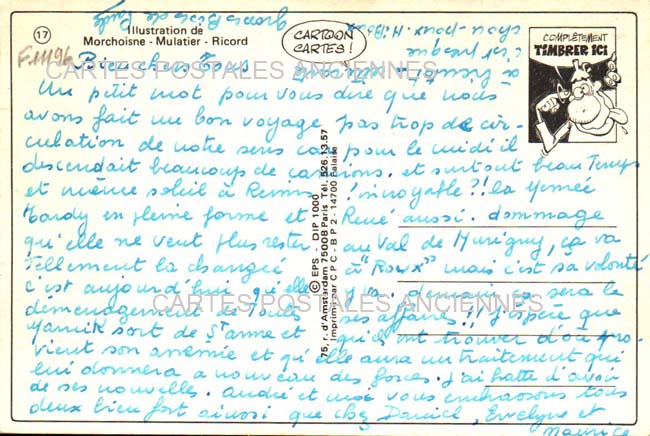 17
Illustration de
Morchoisne - Mulatier - Ricord
CARTOON
CARTES!
COMPLÈTEMENT
TIMBRER ICI
CARTES POSTALES ANCIENNES
Bien chers Tous
Un petit mot pour vous dire que nous
avons fait un bon voyage pas trop de cir-
culation de notre sens car pour le midi il
descendait beaucoup de camions. et surtout beau Temps
et même soleil à Reims ! incroyable?!! la Mémée
Mardy en pleine forme et René aussi. dommage
qu'elle ne veut plus rester au Val de Murigny, ça va
Tellement la changée à "Roux" mais c'est sa volonté
c'est aujourd'hui qu'elle
déménagement de
ses affaires!! J'espère que
Yanick sort de St anne et qu'ils ont trouver d'où pro-
vient son anémie et qu'elle aura un traitement qui
lui donnera a nouveau des forces. j'ai hatte d'avoir
de ses nouvelles. andré et moi vous embrassons tous
deux bien fort ainsi que chez Daniel, Evelyne et
Maurice
© EPS - DIP 1000
75, r. d'Amsterdam 75008 Paris Tél. 526.13.57
Imprimé par C P C - B P 2 - 14700 Falaise
CARTES POSTALES ANCIENNES